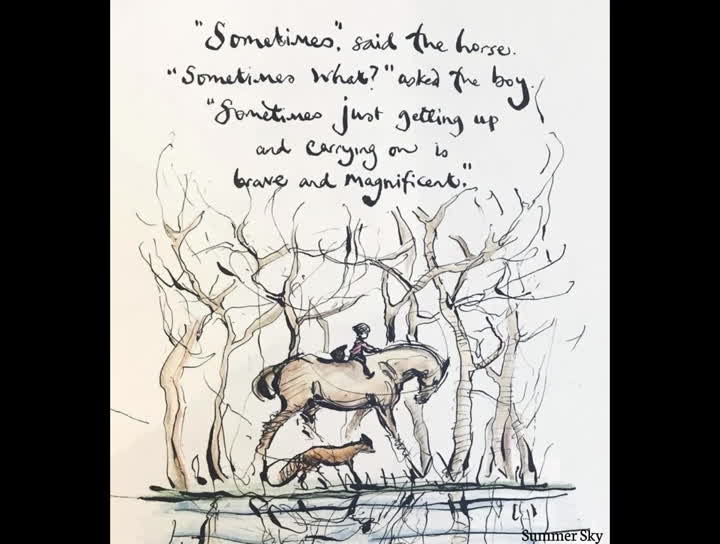 "Sometimes", said the horse.
"Sometimes what?" asked the boy.
"Sometimes just getting up
and carrying on is
brave and magnificent."
Summer Sky